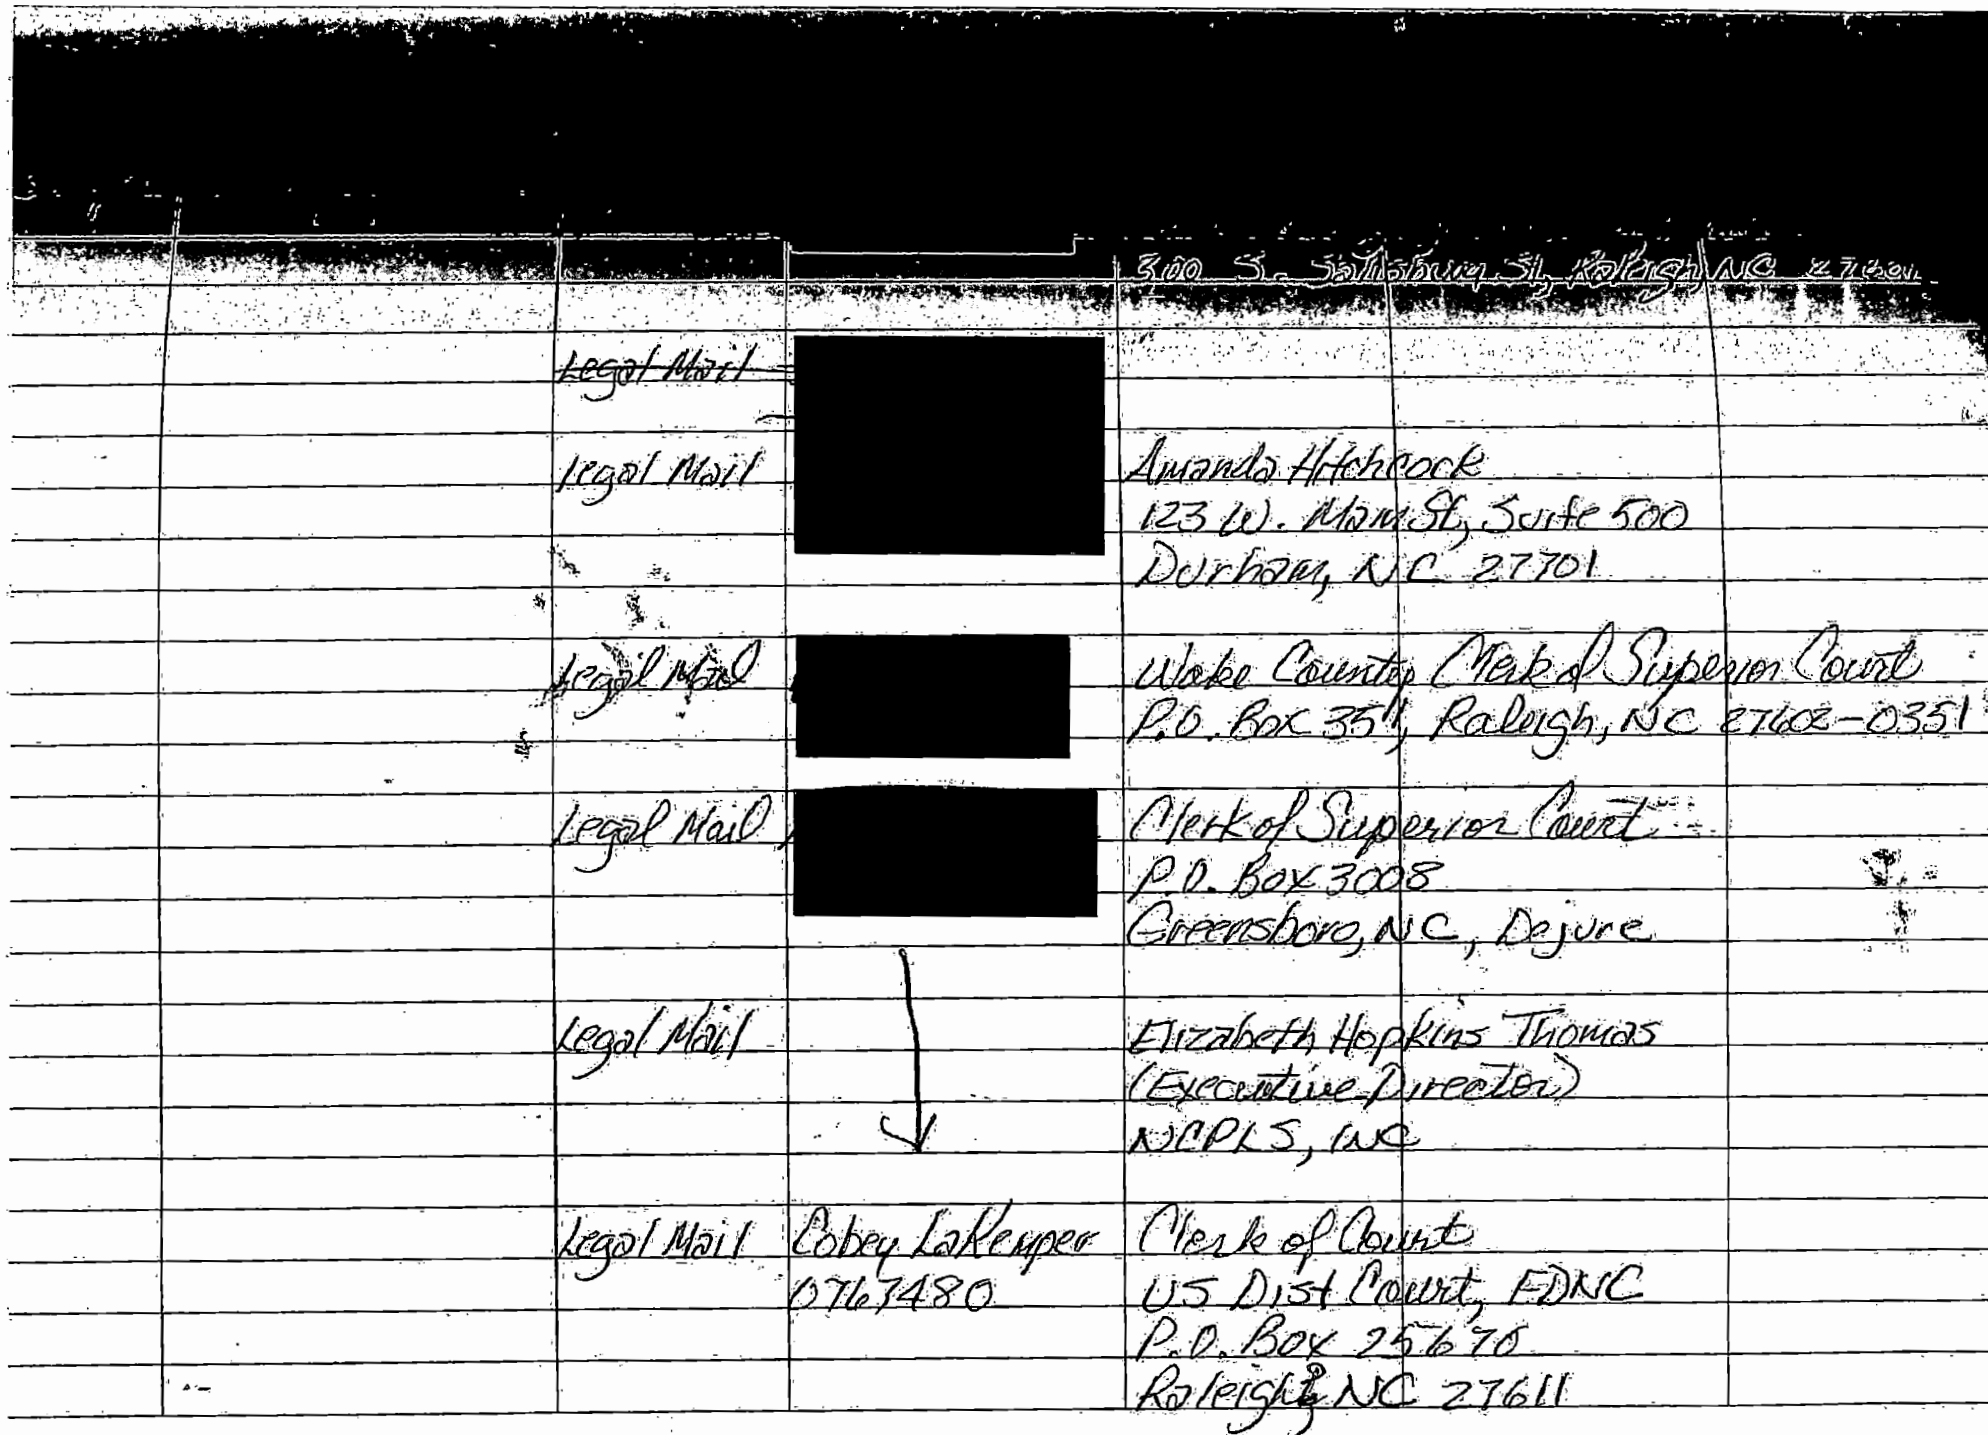 300 S. Salisbury St, Raleigh NC 27601
Legal Mail
Legal Mail Amanda Hitchcock
123 W. Main St, Suite 500
Durham, NC 27701
Legal Mail Wake County Clerk of Superior Court
P.O. Box 351, Raleigh, NC 27602-0351
Legal Mail Clerk of Superior Court
P.O. Box 3008
Greensboro, NC, Dejure
Legal Mail Elizabeth Hopkins Thomas
(Executive Director)
NCPLS, INC
Legal Mail Cobey LaKemper Clerk of Court
0763480 US Dist Court, EDNC
P.O. Box 25670
Raleigh, NC 27611